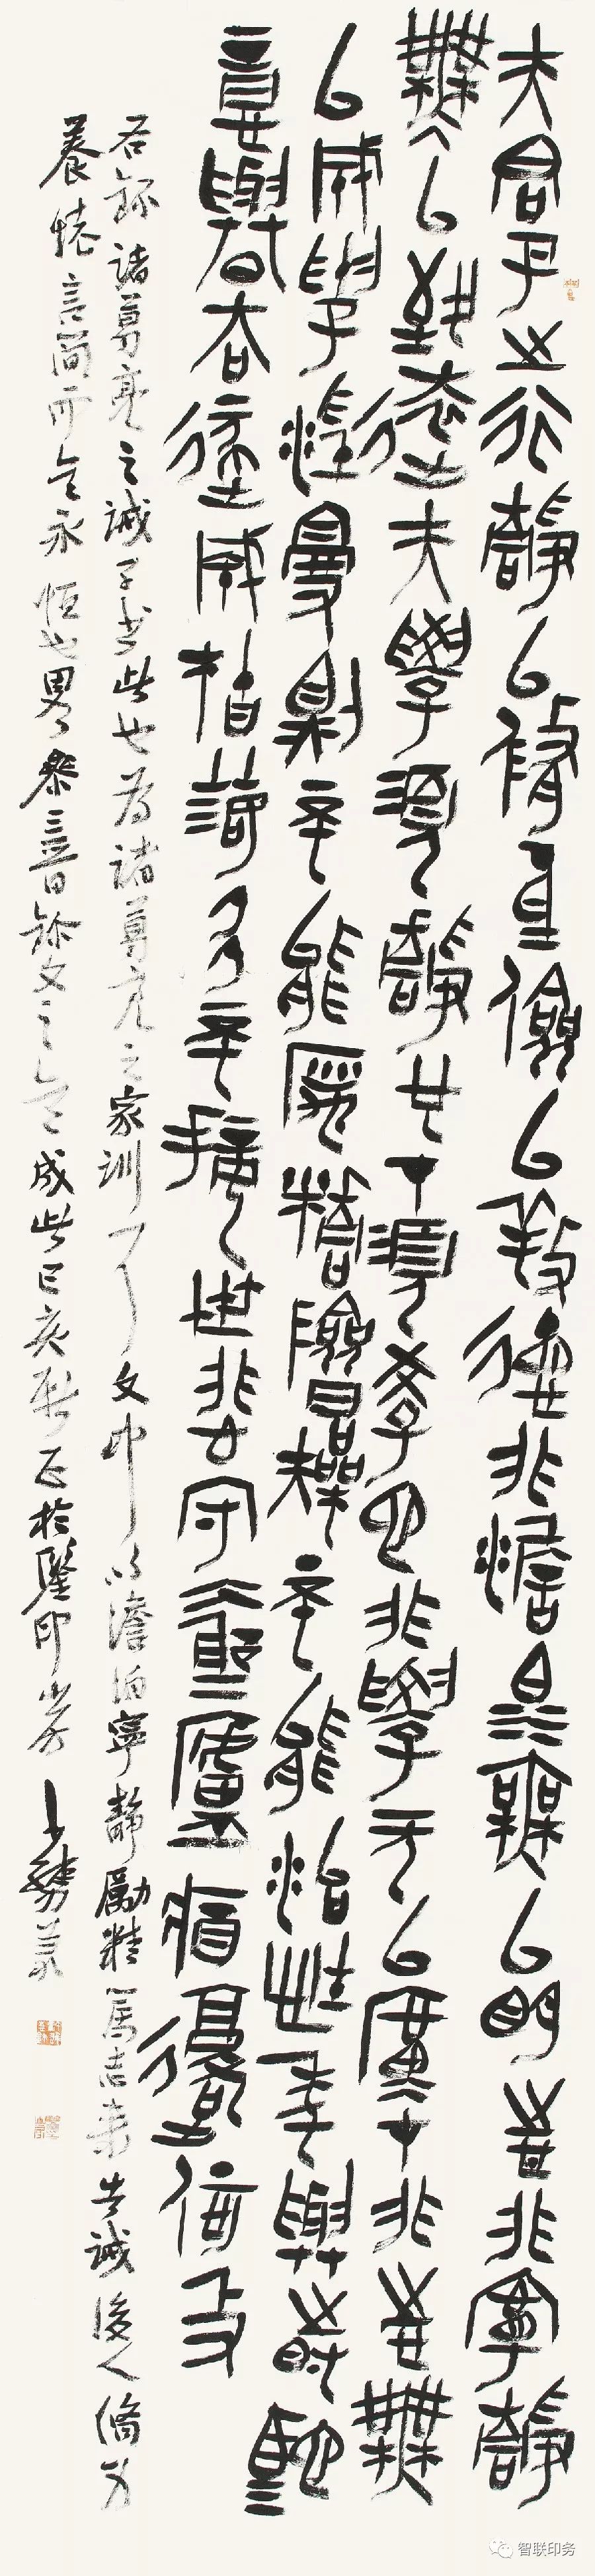 夫君子之行靜以脩身儉以養德非澹泊無以明志非寧靜
無以致遠夫學須靜也才須學也非學无以廣才非志無
以成學慆慢則不能勵精險躁則不能治性年與時馳
意與日去遂成枯落多不接世悲守窮廬將復何及
右錄諸葛亮之誡子書此也為諸葛亮之家訓文中以澹泊寧靜勵精篤志來告誡後人脩身
養德言簡而永恆也成此己亥秋於鑒印山房
智联印务